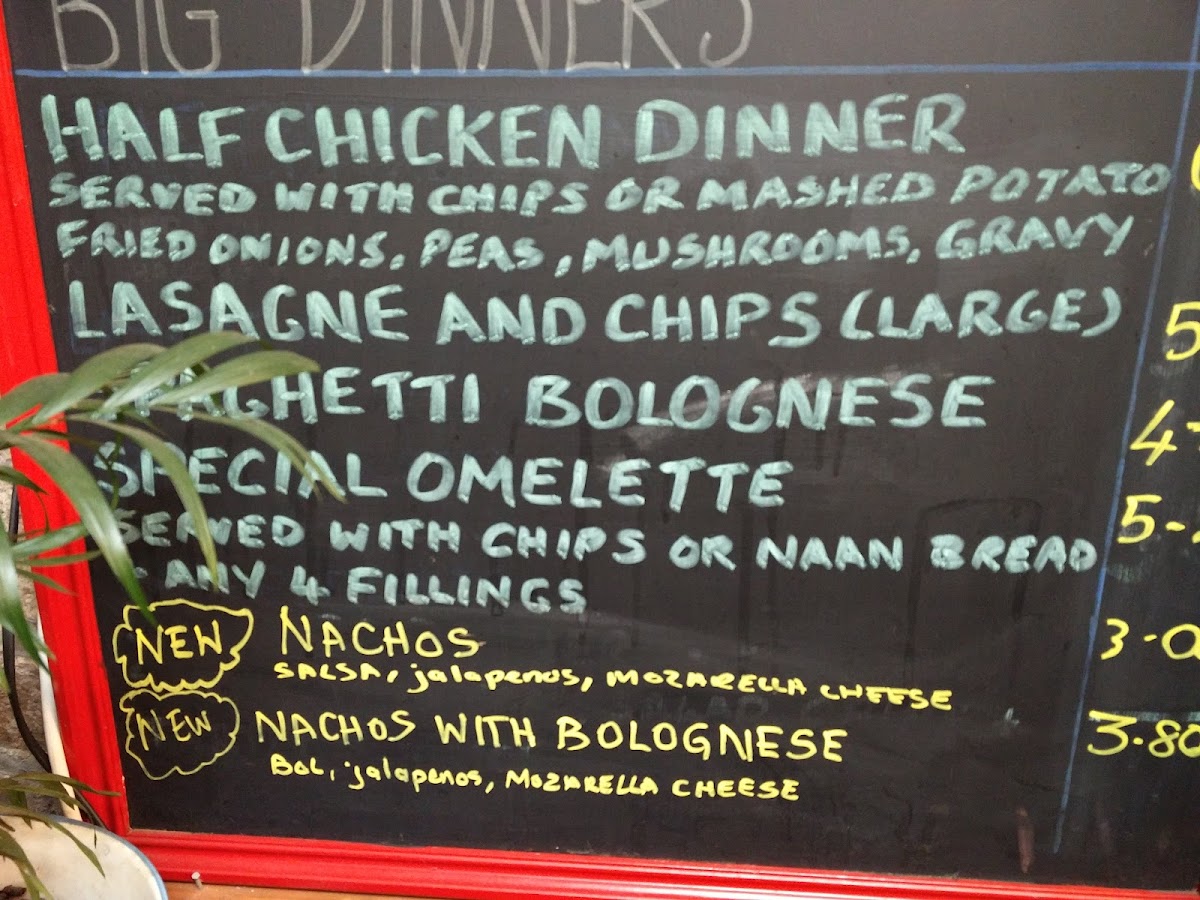 BIG DINNERS
HALF CHICKEN DINNER
SERVED WITH CHIPS OR MASHED POTATO
FRIED ONIONS, PEAS, MUSHROOMS, GRAVY
LASAGNE AND CHIPS (LARGE)
5
SPAGHETTI BOLOGNESE
4-
SPECIAL OMELETTE
5-
SERVED WITH CHIPS OR NAAN BREAD
ANY 4 FILLINGS
NEW NACHOS
3-0
SALSA, jalapenos, MOZARELLA CHEESE
NEW NACHOS WITH BOLOGNESE
3.80
BOL, jalapenos, MOZARELLA CHEESE